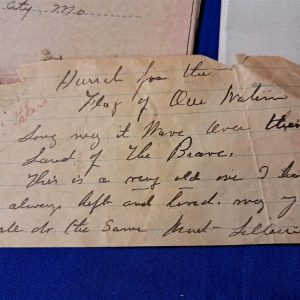 City, Mo
Hurrah for the
Flag of Our Nation
Long may it Wave Over their
Land of The Brave.
This is a very old one I have
always left and loved. may
do the same